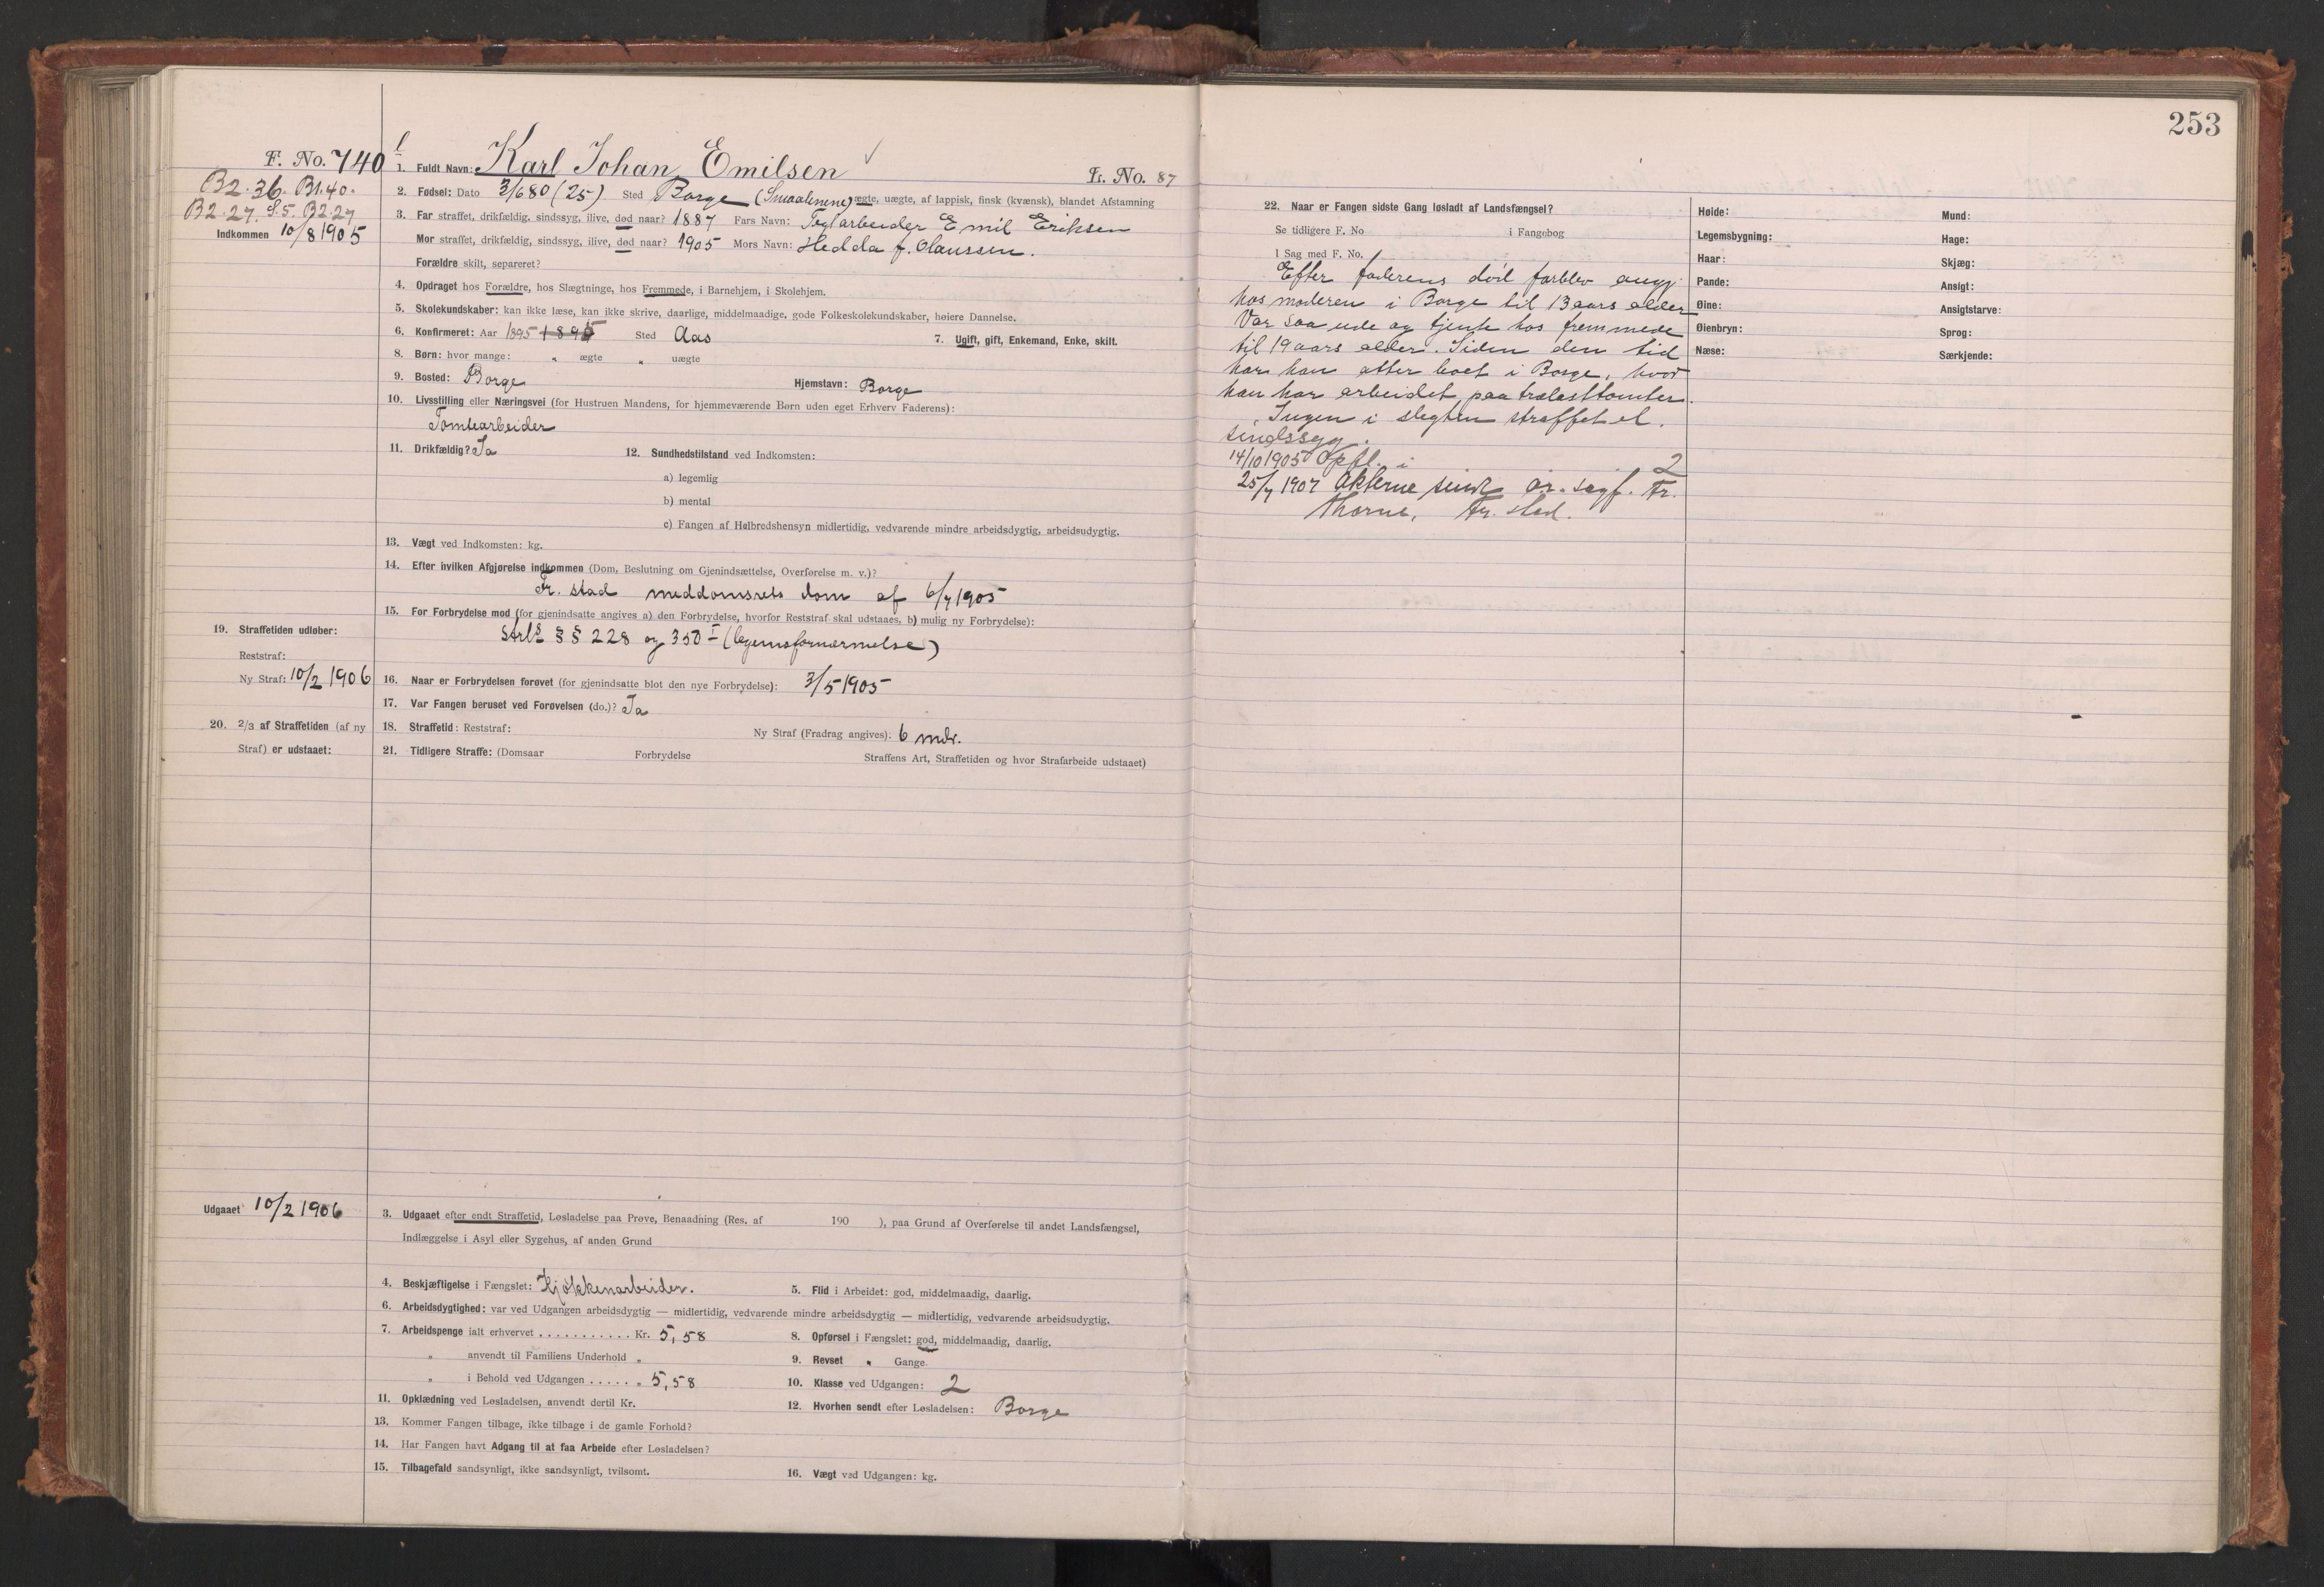 253
F. No. 740
1. Fuldt Navn: Karl Johan Emilsen
Fr. No. 87
B2.36. B1.40.
B2.27. S.5. B2.27
Indkommen 10/8 1905
2. Fødsel: Dato 3/6 80 (25) Sted Borge (Smaalenene) ægte, uægte, af lappisk, finsk (kvænsk), blandet Afstamning
3. Far straffet, drikfældig, sindssyg, ilive, død naar? 1887 Fars Navn: Teglarbeider Emil Eriksen
Mor straffet, drikfældig, sindssyg, ilive, død naar? 1905 Mors Navn: Hedda f. Olaussen.
Forældre skilt, separeret?
4. Opdraget hos Forældre, hos Slægtninge, hos Fremmede, i Barnehjem, i Skolehjem.
5. Skolekundskaber: kan ikke læse, kan ikke skrive, daarlige, middelmaadige, gode Folkeskolekundskaber, høiere Dannelse.
6. Konfirmeret: Aar 1895 1895 Sted Aas 7. Ugift, gift, Enkemand, Enke, skilt.
8. Børn: hvor mange: " ægte " uægte
9. Bosted: Borge Hjemstavn: Borge
10. Livsstilling eller Næringsvei (for Hustruen Mandens, for hjemmeværende Børn uden eget Erhverv Faderens):
Tomtearbeider
11. Drikfældig? Ja 12. Sundhedstilstand ved Indkomsten:
a) legemlig
b) mental
c) Fangen af Helbredshensyn midlertidig, vedvarende mindre arbeidsdygtig, arbeidsudygtig.
13. Vægt ved Indkomsten: kg.
14. Efter hvilken Afgjørelse indkommen (Dom, Beslutning om Gjenindsættelse, Overførelse m. v.)?
Fr. stad meddomsrets dom af 6/7 1905
15. For Forbrydelse mod (for gjenindsatte angives a) den Forbrydelse, hvorfor Reststraf skal udstaaes, b) mulig ny Forbrydelse):
Strl. §§ 228 og 350 I (legemsfornærmelse)
19. Straffetiden udløber:
Reststraf:
Ny Straf: 10/2 1906
16. Naar er Forbrydelsen forøvet (for gjenindsatte blot den nye Forbrydelse): 3/5 1905
17. Var Fangen beruset ved Forøvelsen (do.)? Ja
20. 2/3 af Straffetiden (af ny
Straf) er udstaaet:
18. Straffetid: Reststraf: Ny Straf (Fradrag angives): 6 mdr.
21. Tidligere Straffe: (Domsaar Forbrydelse Straffens Art, Straffetiden og hvor Strafarbeide udstaaet)
Udgaaet 10/2 1906
3. Udgaaet efter endt Straffetid, Løsladelse paa Prøve, Benaadning (Res. af 190 ), paa Grund af Overførelse til andet Landsfængsel,
Indlæggelse i Asyl eller Sygehus, af anden Grund
4. Beskjæftigelse i Fængslet: Kjøkkenarbeider. 5. Flid i Arbeidet: god, middelmaadig, daarlig.
6. Arbeidsdygtighed: var ved Udgangen arbeidsdygtig — midlertidig, vedvarende mindre arbeidsdygtig — midlertidig, vedvarende arbeidsudygtig.
7. Arbeidspenge ialt erhvervet ........... Kr. 5,58 8. Opførsel i Fængslet: god, middelmaadig, daarlig.
" anvendt til Familiens Underhold " 9. Revset " Gange.
" i Behold ved Udgangen ...... " 5,58 10. Klasse ved Udgangen: 2
11. Opklædning ved Løsladelsen, anvendt dertil Kr. 12. Hvorhen sendt efter Løsladelsen: Borge
13. Kommer Fangen tilbage, ikke tilbage i de gamle Forhold?
14. Har Fangen havt Adgang til at faa Arbeide efter Løsladelsen?
15. Tilbagefald sandsynligt, ikke sandsynligt, tvilsomt. 16. Vægt ved Udgangen: kg.
22. Naar er Fangen sidste Gang løsladt af Landsfængsel?
Se tidligere F. No i Fangebog
I Sag med F. No.
Efter faderens død forblev angj.
hos moderen i Borge til 13 aars alder
Var saa ude og tjente hos fremmede
til 19 aars alder. Siden den tid
har han atter boet i Borge, hvor
han har arbeidet paa trælasttomter.
Ingen i slegten straffet el.
sindssyg.
14/10 1905 Opfl. i 2
25/7 1907 Akterne sendt or. sagf. Fr.
Thorne, Fr. stad.
Høide:
Legemsbygning:
Haar:
Pande:
Øine:
Øienbryn:
Næse:
Mund:
Hage:
Skjæg:
Ansigt:
Ansigtstarve:
Sprog:
Særkjende: